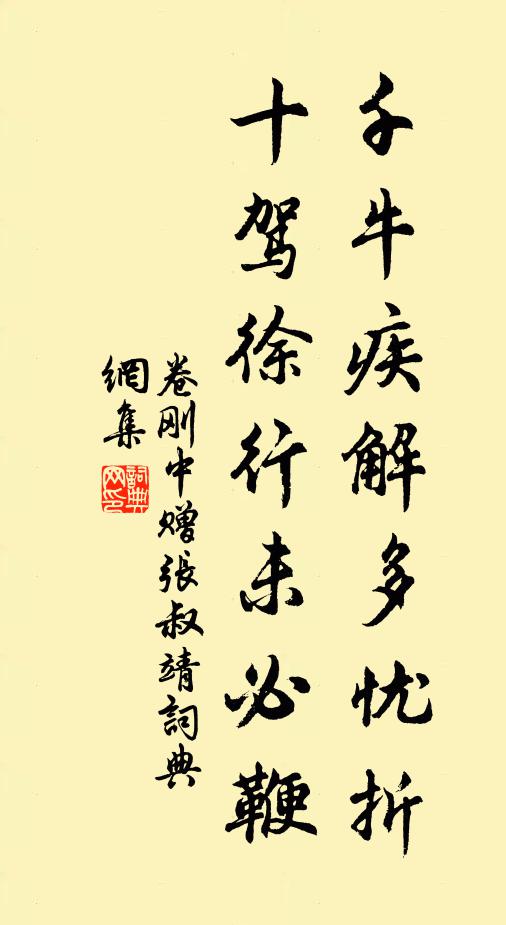 千牛疾解多忧折
十驾徐行未必鞭
卷刚中赠張叔靖詞典
網集
詞典网印